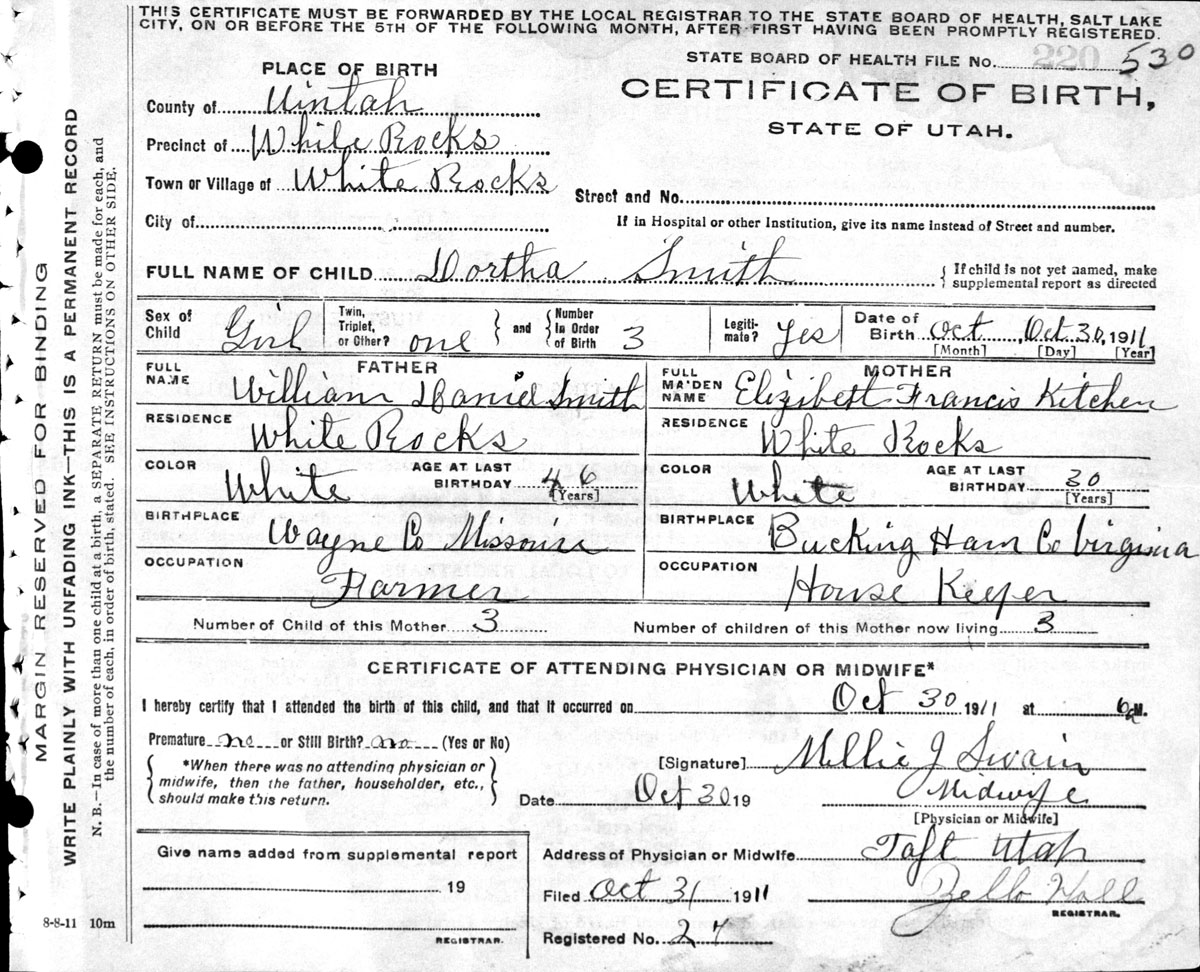 THIS CERTIFICATE MUST BE FORWARDED BY THE LOCAL REGISTRAR TO THE STATE BOARD OF HEALTH, SALT LAKE
CITY, ON OR BEFORE THE 5TH OF THE FOLLOWING MONTH, AFTER FIRST HAVING BEEN PROMPTLY REGISTERED.
STATE BOARD OF HEALTH FILE No. 220 530
PLACE OF BIRTH
CERTIFICATE OF BIRTH,
STATE OF UTAH.
County of Uintah
Precinct of White Rocks
Town or Village of White Rocks
Street and No.
City of
If in Hospital or other Institution, give its name instead of Street and number.
FULL NAME OF CHILD Dortha Smith { If child is not yet named, make
supplemental report as directed
Sex of Child Girl Twin, Triplet, or Other? one and Number In Order of Birth 3 Legiti-mate? Yes Date of Birth Oct, Oct 30, 1911
[Month] [Day] [Year]
FATHER MOTHER
FULL NAME William Daniel Smith FULL MAIDEN NAME Elizibett Francis Kitchen
RESIDENCE White Rocks RESIDENCE White Rocks
COLOR White AGE AT LAST BIRTHDAY 46 [Years] COLOR White AGE AT LAST BIRTHDAY 30 [Years]
BIRTHPLACE Wayne Co Missouri BIRTHPLACE Bucking Ham Co Virginia
OCCUPATION Farmer OCCUPATION House Keeper
Number of Child of this Mother 3 Number of children of this Mother now living 3
CERTIFICATE OF ATTENDING PHYSICIAN OR MIDWIFE*
I hereby certify that I attended the birth of this child, and that it occurred on Oct 30 1911 at 6 M.
Premature no or Still Birth? no (Yes or No)
*When there was no attending physician or
midwife, then the father, householder, etc.,
should make this return.
[Signature] Mellie J Swain
Date Oct 30 19 Midwife
[Physician or Midwife]
Give name added from supplemental report
19
REGISTRAR.
Address of Physician or Midwife Taft Utah
Filed Oct 31 1911 Zello Hall
REGISTRAR.
Registered No. 24
8-8-11 10m
MARGIN RESERVED FOR BINDING
WRITE PLAINLY WITH UNFADING INK—THIS IS A PERMANENT RECORD
N. B.—In case of more than one child at a birth, a SEPARATE RETURN must be made for each, and
the number of each, in order of birth, stated. SEE INSTRUCTIONS ON OTHER SIDE.